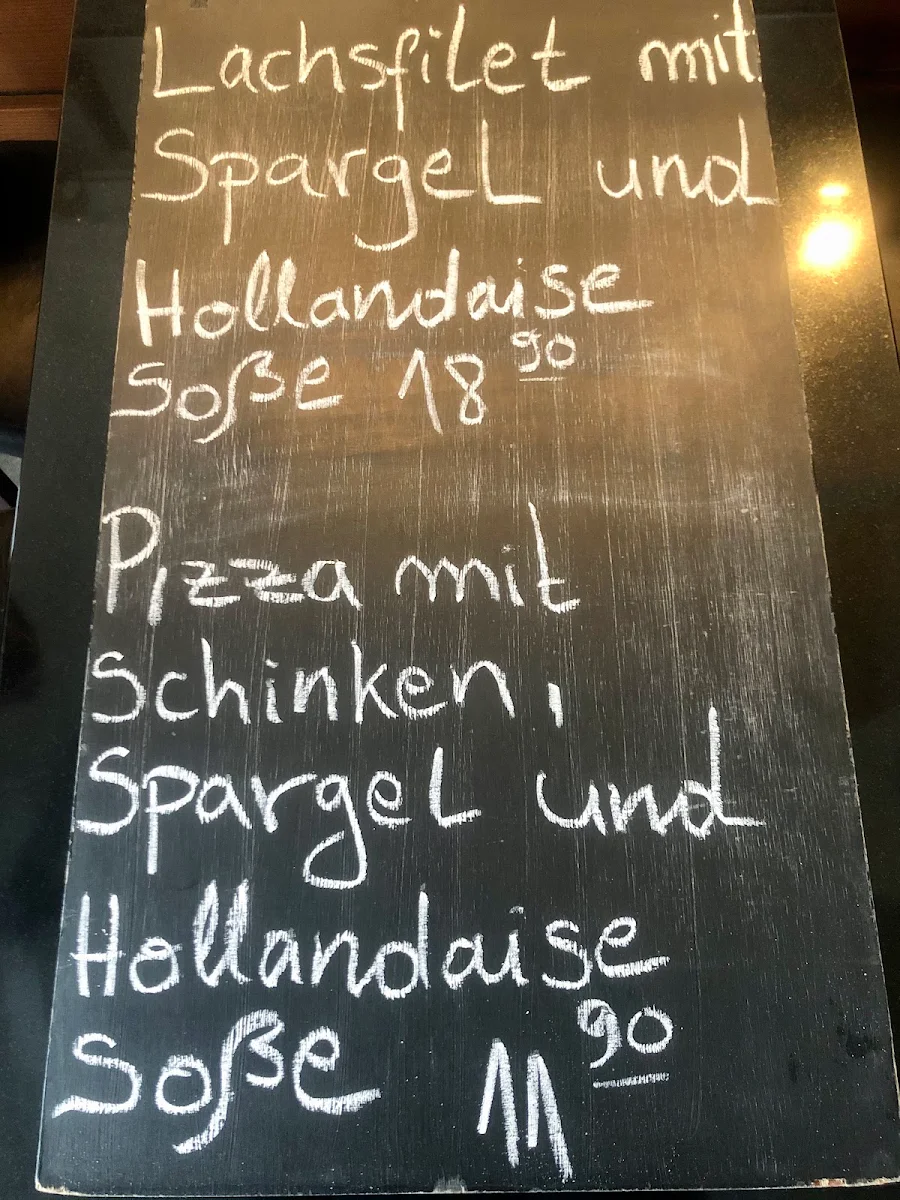 Lachsfilet mit
Spargel und
Hollandaise
Soße 18 90
Pizza mit
Schinken,
Spargel und
Hollandaise
Soße 11 90